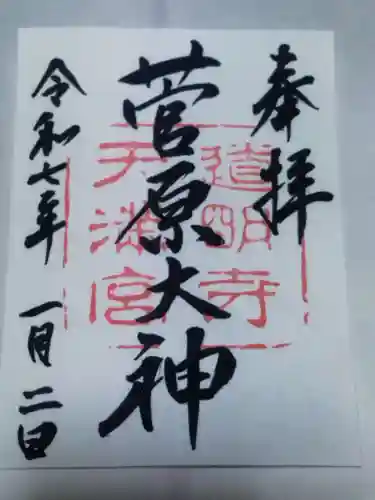 奉拝
道明寺
天満宮
菅原大神
令和七年 一月二日